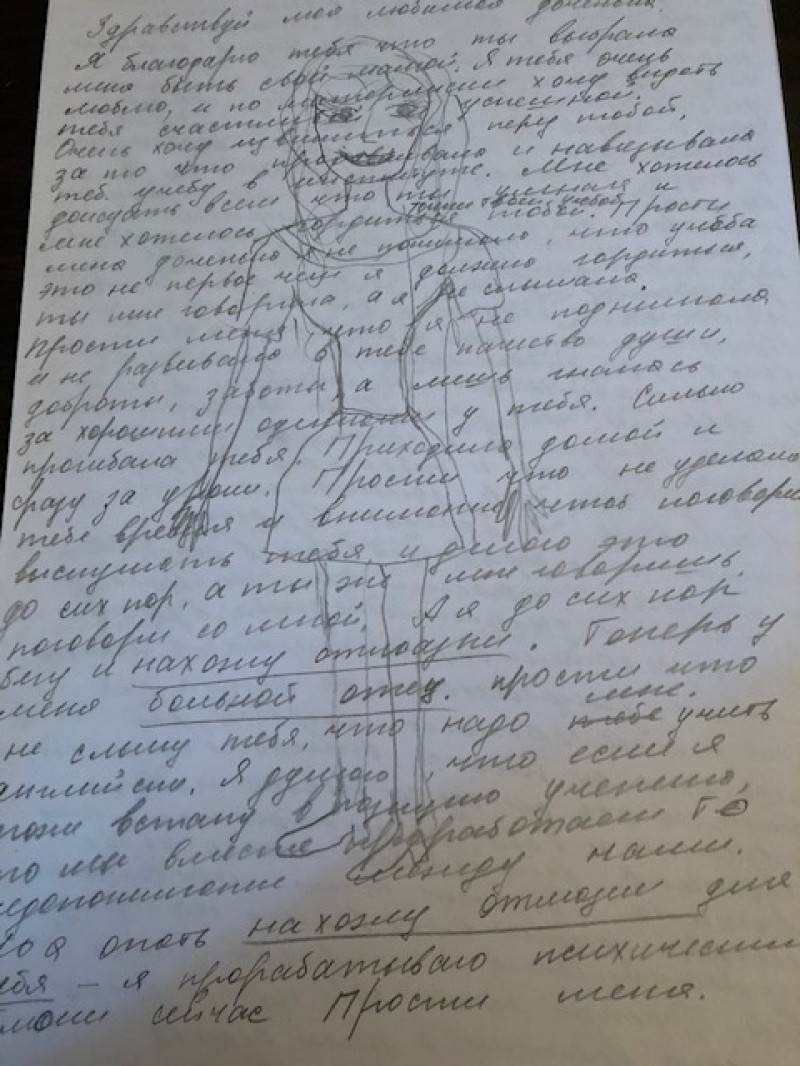 Здравствуй моя любимая доченька.
Я благодарю тебя что ты выбрала
меня быть своей мамой. Я тебя очень
люблю, и по матерински хочу видеть
тебя счастливой успешной.
Очень хочу извиниться перед тобой,
за то что и навязывала
тебе учёбу в институте. Мне хотелось
доказать всем что ты умная и
мне хотелось гордиться тобой. Прости
меня доченька я не понимала, что учёба
это не первое чем я должна гордиться,
ты мне говорила, а я не слышала.
Прости меня, что я не поднимала
и не развивала в тебе качества души,
доброты, заботы, а лишь гналась
за хорошими оценками у тебя. Сильно
прогибала тебя. Приходила домой и
сразу за уроки. Прости что не уделяла
тебе время и внимание чтоб поговорить
выслушать тебя, и делаю это
до сих пор, а ты же мне говоришь
поговори со мной. А я до сих пор
бегу и нахожу отмазки. Теперь у
меня больной отец. прости что
не слышу тебя, что надо мне учить
английский. Я думаю, что если я
встану в позицию ученика,
то мы вместе проработаем то
недопонимание между нами.
Но я опять нахожу отмазки для
себя – я прорабатываю психический
сейчас Прости меня.